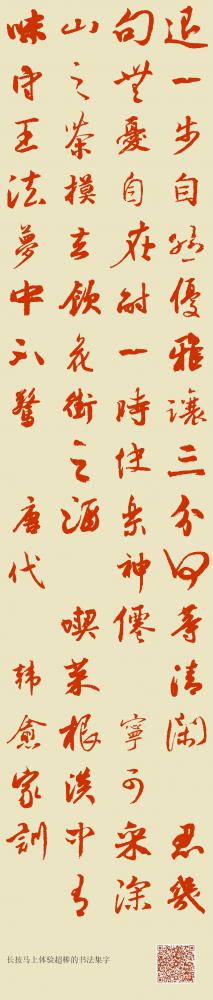 退一步自然優雅讓三分何等清閑 忍幾
句無憂自在耐一時快樂神僊 寧可采深
山之茶摸去飲花街之酒 喫菜根淡中有
味守王法夢中不驚 唐代 韓愈家訓
长按马上体验超棒的书法集字